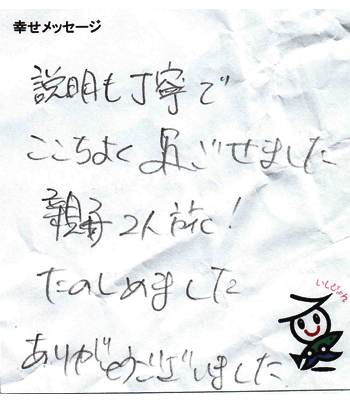 幸せメッセージ
説明も丁寧で
ここちよく過ごせました
親子2人旅!
たのしめました
いしぴょん
ありがとうございました